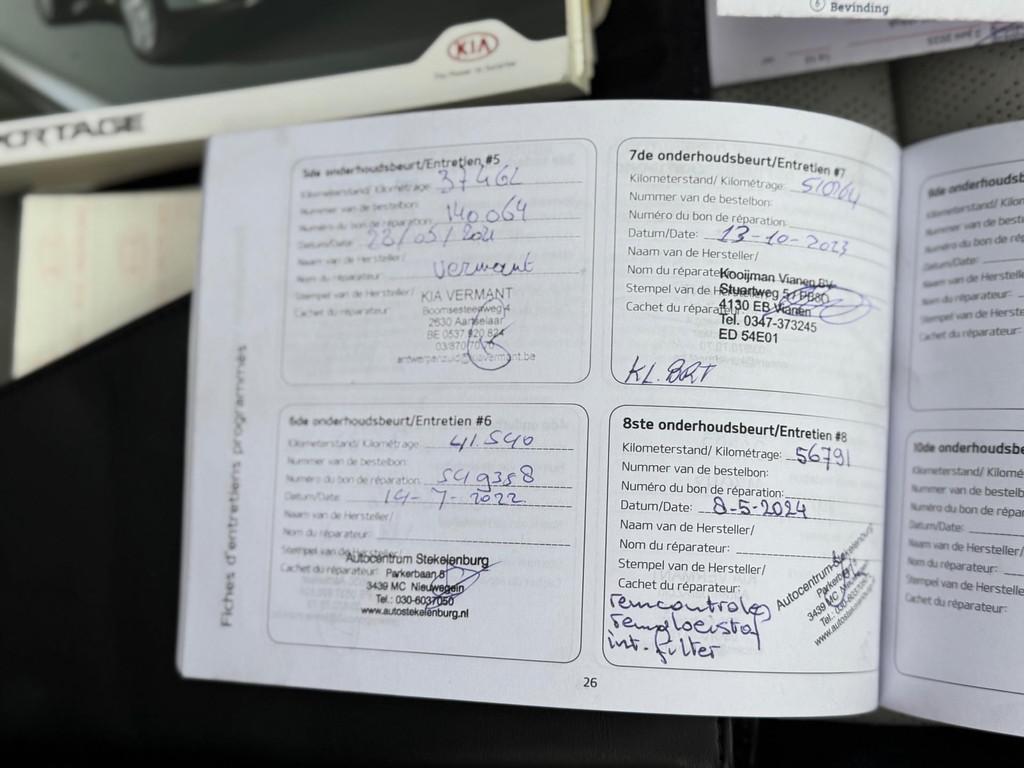 6 Bevinding
KIA
The Power to Surprise
PORTAGE
Fiches d'entretiens programmés
5de onderhoudsbeurt/Entretien #5
Kilometerstand/ Kilométrage: 37462
Nummer van de bestelbon:
Numéro du bon de réparation: 140064
Datum/Date:
Naam van de Hersteller/
Nom du réparateur: Vermant
Stempel van de Hersteller/
Cachet du réparateur:
KIA VERMANT
Boomsesteenweg 4
2630 Aartselaar
BE 0537 820 824
antwerpenzuid@kiavermant.be
6de onderhoudsbeurt/Entretien #6
Kilometerstand/ Kilométrage: 41.540
Nummer van de bestelbon:
Numéro du bon de réparation: 549358
Datum/Date: 14-7-2022
Naam van de Hersteller/
Nom du réparateur:
Stempel van de Hersteller/
Cachet du réparateur:
Autocentrum Stekelenburg
Parkerbaan 8
3439 MC Nieuwegein
Tel.: 030-6037050
www.autostekelenburg.nl
7de onderhoudsbeurt/Entretien #7
Kilometerstand/ Kilométrage:
Nummer van de bestelbon:
Numéro du bon de réparation:
Datum/Date: 13-10-2023
Naam van de Hersteller/
Nom du réparateur:
Stempel van de Hersteller/
Cachet du réparateur:
Kooijman Vianen BV
Stuartweg 5 / PB80
4130 EB Vianen
Tel. 0347-373245
ED 54E01
KL. BRT
8ste onderhoudsbeurt/Entretien #8
Kilometerstand/ Kilométrage: 56791
Nummer van de bestelbon:
Numéro du bon de réparation:
Datum/Date: 8-5-2024
Naam van de Hersteller/
Nom du réparateur:
Stempel van de Hersteller/
Cachet du réparateur:
Autocentrum Stekelenburg
Parkerbaan 8
3439 MC Nieuwegein
Tel.: 030-603
www.autostekelenburg
remcontrole
remvloeistof
int. filter
26
9de onderhoudsb
Kilometerstand/ Kilom
Nummer van de bestelb
Numéro du bon de rép
Datum/Date:
Naam van de Herstelle
Nom du réparateur:
Stempel van de Herstelle
Cachet du réparateur:
10de onderhoudsbe
Kilometerstand/ Kilomé
Nummer van de bestelb
Numéro du bon de répar
Datum/Date:
Naam van de Hersteller/
Nom du réparateur:
Stempel van de Hersteller
Cachet du réparateur: